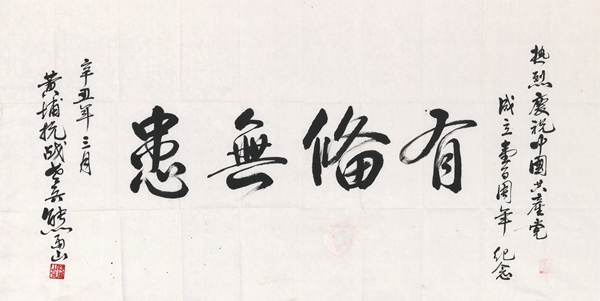 热烈慶祝中國共產党
成立壹百周年 纪念
有備無患
辛丑年三月
黄埔抗战老兵熊南山